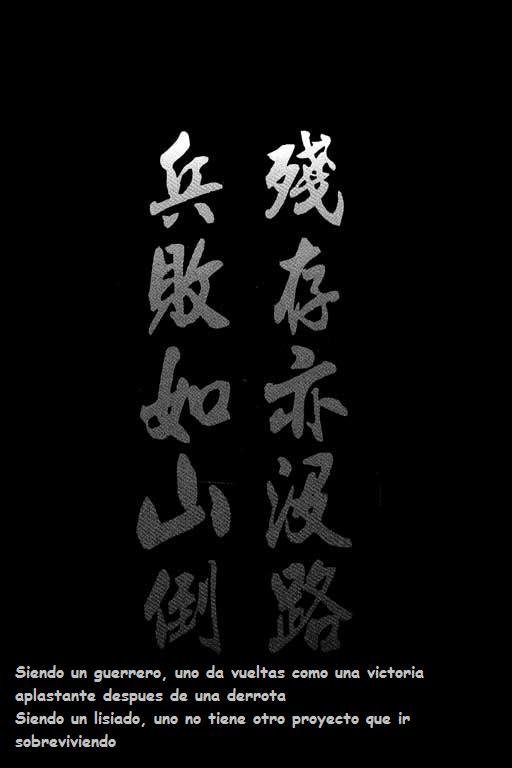 殘存亦沒路
兵敗如山倒
Siendo un guerrero, uno da vueltas como una victoria
aplastante despues de una derrota
Siendo un lisiado, uno no tiene otro proyecto que ir
sobreviviendo